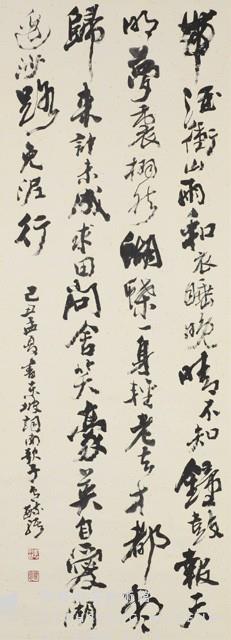 帶酒衝山雨和衣睡晚晴不知鐘鼓報天
明夢裏栩然蝴蝶一身輕老去才都盡
歸來計未成求田問舍笑豪英自愛湖
邊沙路免泥行
己丑孟 書東坡詞南歌子